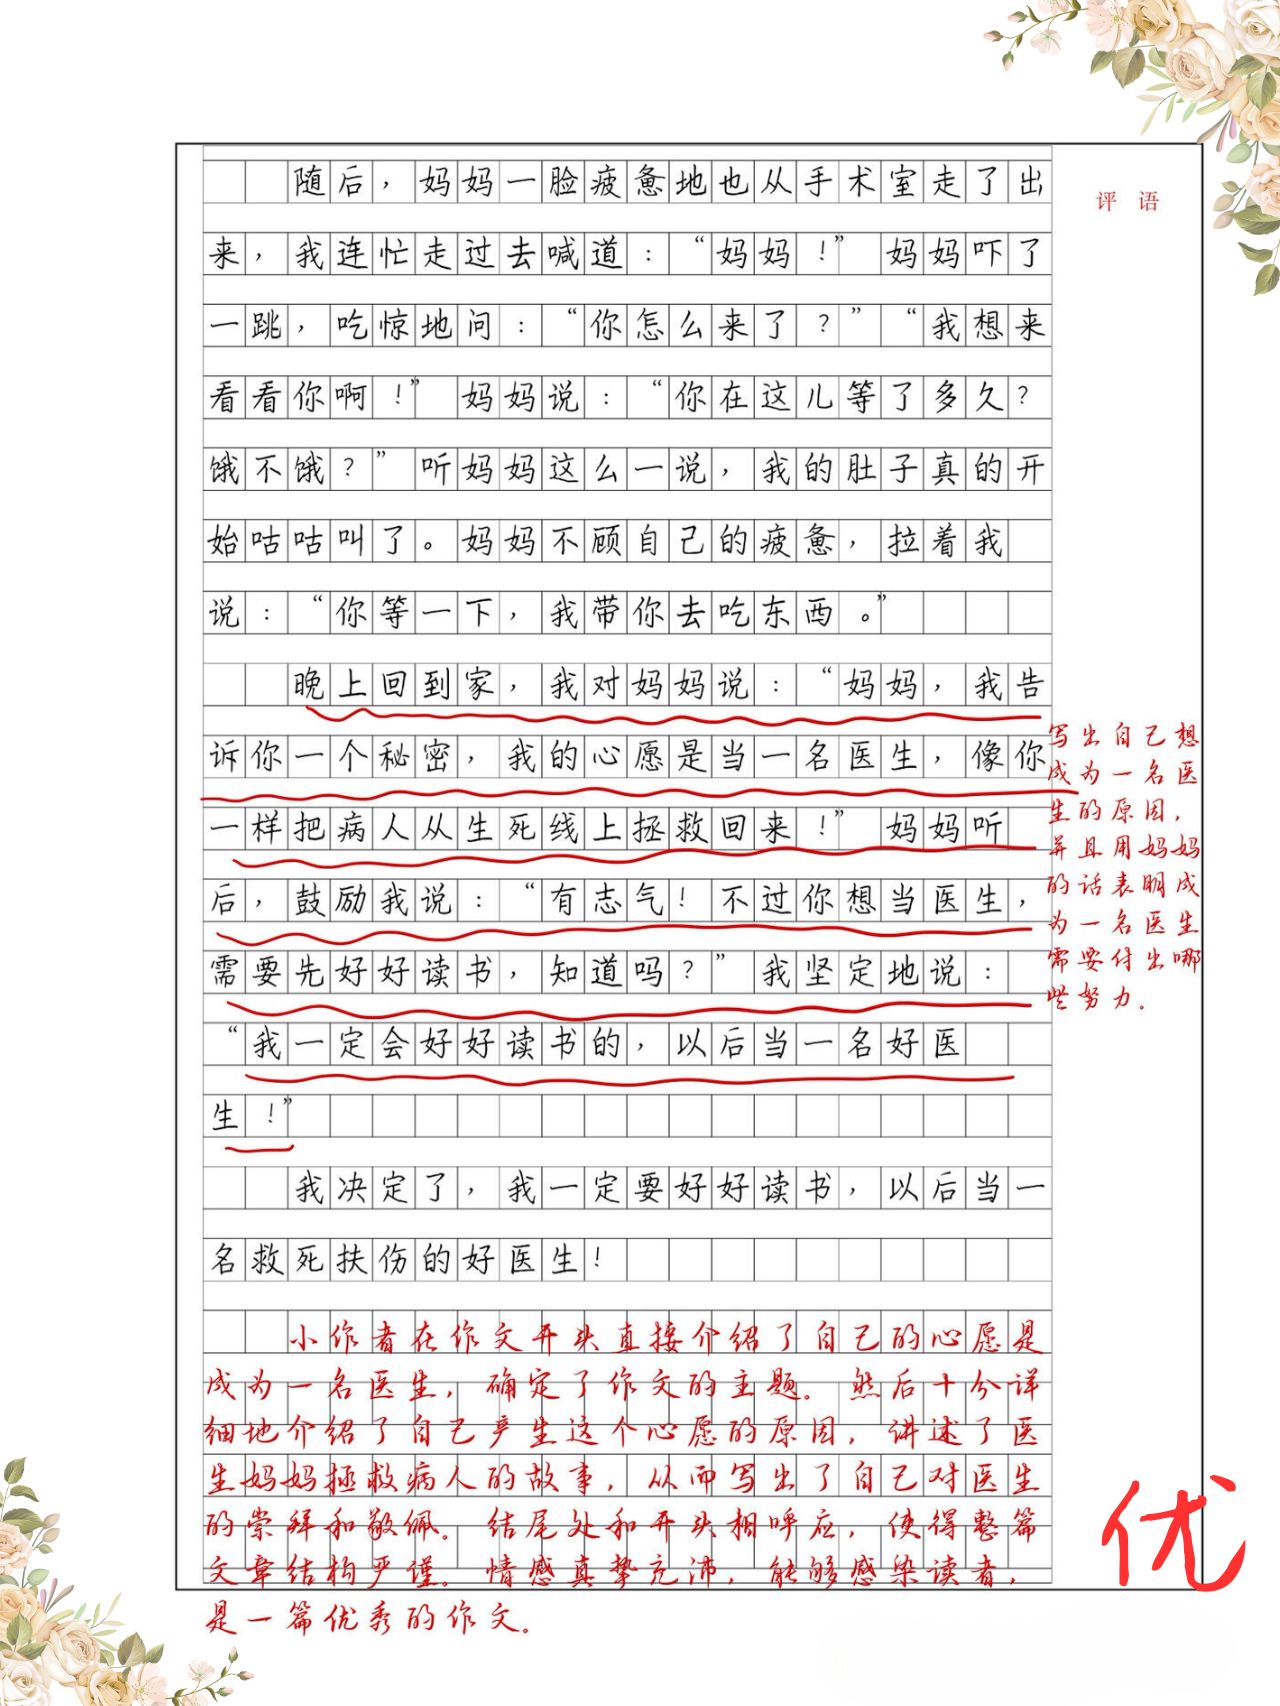 随后，妈妈一脸疲惫地也从手术室走了出
来，我连忙走过去喊道：“妈妈！”妈妈吓了
一跳，吃惊地问：“你怎么来了？”“我想来
看看你啊！”妈妈说：“你在这儿等了多久？
饿不饿？”听妈妈这么一说，我的肚子真的开
始咕咕叫了。妈妈不顾自己的疲惫，拉着我
说：“你等一下，我带你去吃东西。”
晚上回到家，我对妈妈说：“妈妈，我告
诉你一个秘密，我的心愿是当一名医生，像你
一样把病人从生死线上拯救回来！”妈妈听
后，鼓励我说：“有志气！不过你想当医生，
需要先好好读书，知道吗？”我坚定地说：
“我一定会好好读书的，以后当一名好医
生！”
我决定了，我一定要好好读书，以后当一
名救死扶伤的好医生！
评语
写出自己想
成为一名医
生的原因，
并且用妈妈
的话表明成
为一名医生
需要付出哪
些努力。
小作者在作文开头直接介绍了自己的心愿是
成为一名医生，确定了作文的主题。然后十分详
细地介绍了自己产生这个心愿的原因，讲述了医
生妈妈拯救病人的故事，从而写出了自己对医生
的崇拜和敬佩。结尾处和开头相呼应，使得整篇
文章结构严谨。情感真挚充沛，能够感染读者，
是一篇优秀的作文。
优